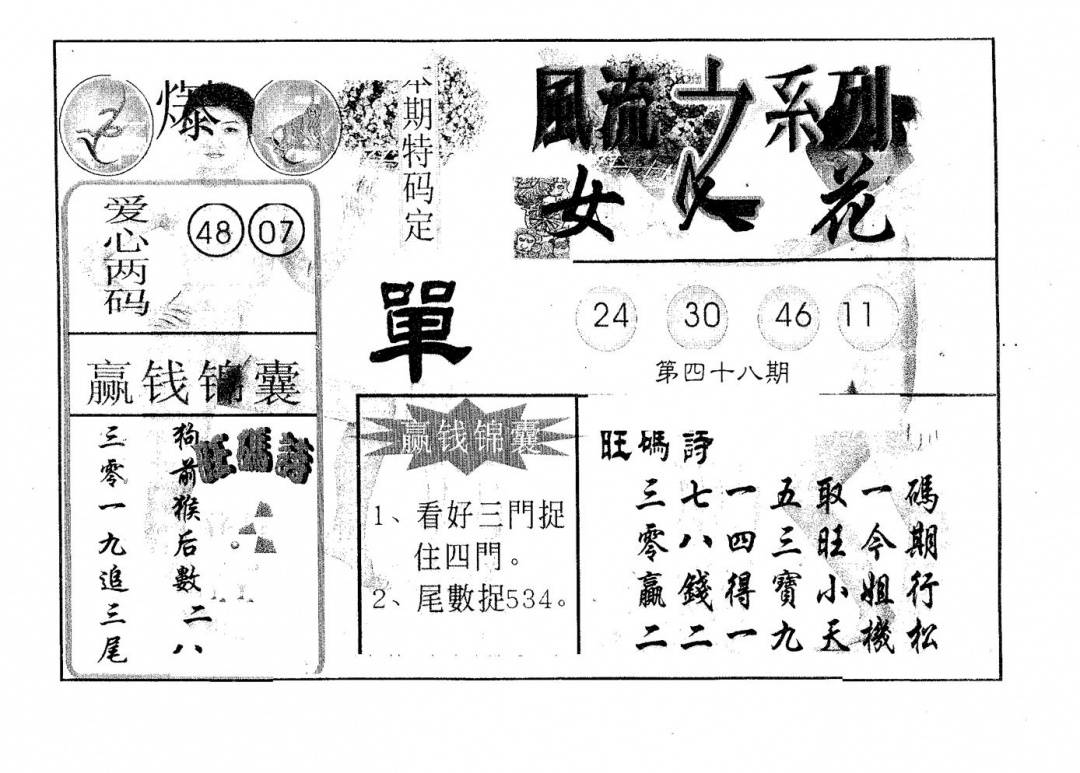 爆
爱心两码
48 07
赢钱锦囊
狗前猴后數二八
三零一九追三尾
旺碼詩
本期特码定
單
風流之系列
女人花
24 30 46 11
第四十八期
赢钱锦囊
1、看好三門捉
住四門。
2、尾數捉534。
旺碼詩
三七一五取一碼
零八四三旺今期
贏錢得寶小姐行
二二一九天機松